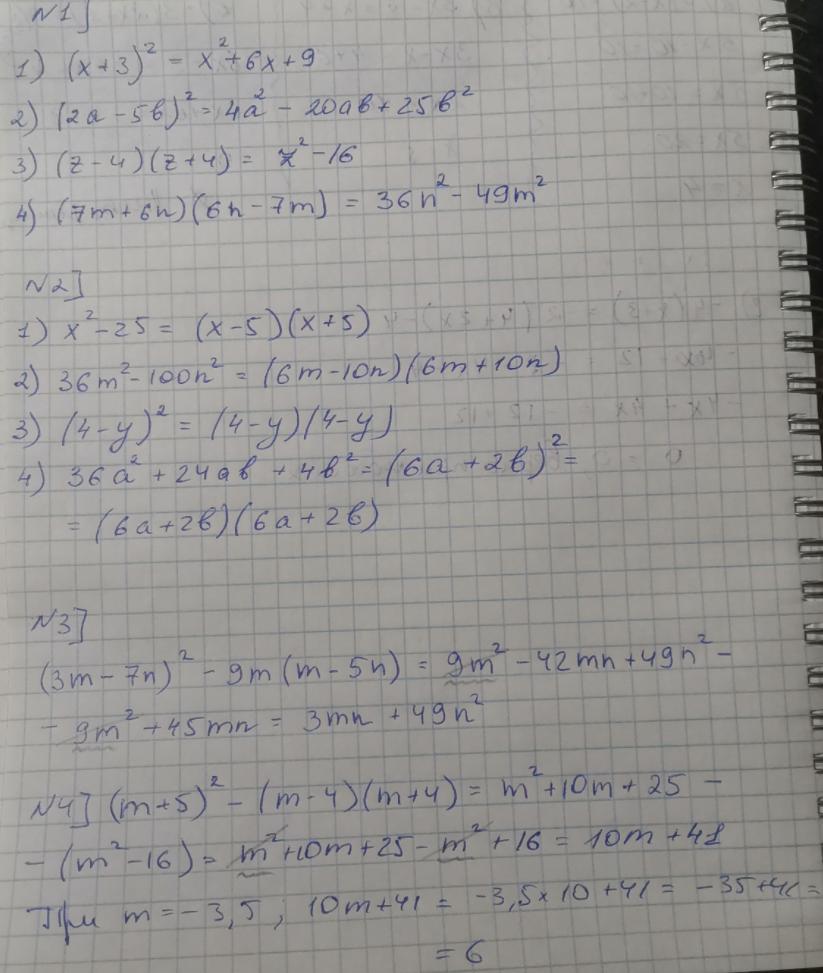 N1]
1) (x+3)² = x²+6x+9
2) (2a-5b)² = 4a² - 20ab+25b²
3) (z-4)(z+4) = z²-16
4) (7m+6n)(6n-7m) = 36n² - 49m²
N2]
1) x²-25 = (x-5)(x+5)
2) 36m²-100n² = (6m-10n)(6m+10n)
3) (4-y)² = (4-y)(4-y)
4) 36a² + 24ab + 4b² = (6a+2b)² =
= (6a+2b)(6a+2b)
N3]
(3m-7n)² - 9m(m-5n) = 9m² - 42mn+49n² -
- 9m² +45mn = 3mn + 49n²
N4] (m+5)² - (m-4)(m+4) = m²+10m+25 -
- (m²-16) = m²+10m+25-m²+16 = 10m+41
При m = -3,5; 10m+41 = -3,5×10+41 = -35+41 =
= 6